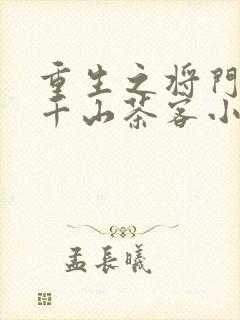 重生之将门
千山茶客小
孟長曦